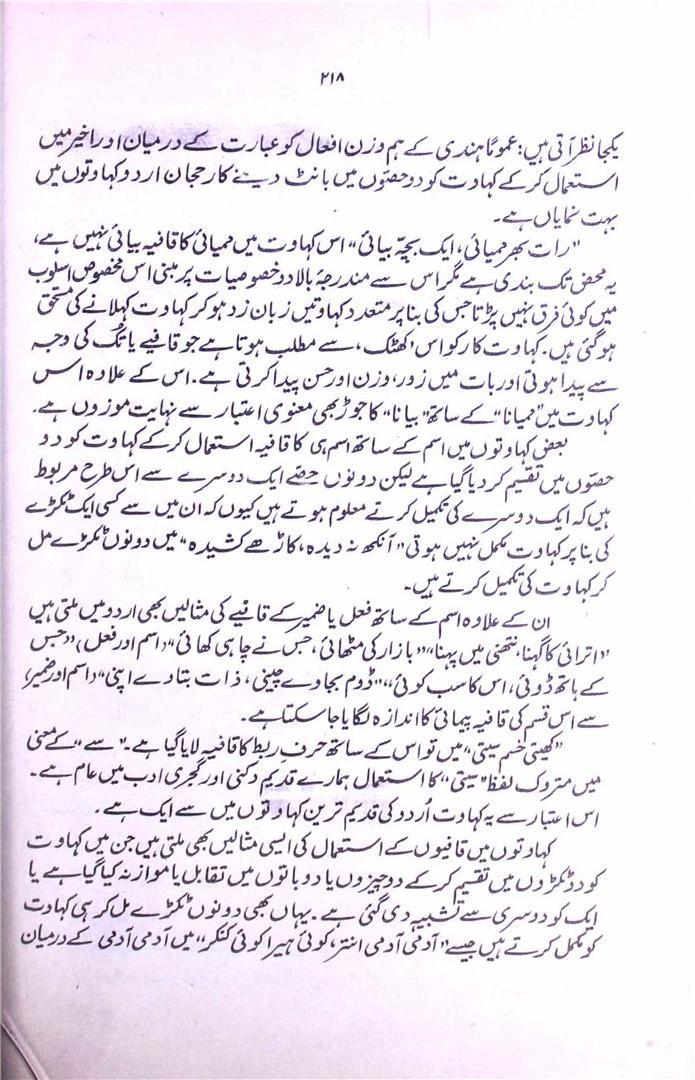 ۲۱۸
یکجا نظر آتی ہیں: عموماً ہندی کے ہم وزن افعال کو عبارت کے درمیان اور اخیر میں
استعمال کر کے کہاوت کو دو حصّوں میں بانٹ دینے کا رجحان اردو کہاوتوں میں
بہت نمایاں ہے۔
"رات بھر ممیائی، ایک بچہ بیائی" اس کہاوت میں ممیائی کا قافیہ بیائی نہیں ہے،
یہ محض تک بندی ہے مگر اس سے مندرجۂ بالا دو خصوصیات پر مبنی اس مخصوص اسلوب
میں کوئی فرق نہیں پڑتا جس کی بنا پر متعدد کہاوتیں زبان زد ہو کر کہاوت کہلانے کی مستحق
ہو گئی ہیں۔ کہاوت کار کو اس 'کھٹک'، سے مطلب ہوتا ہے جو قافیے یا تُک کی وجہ
سے پیدا ہوتی اور بات میں زور، وزن اور حسن پیدا کرتی ہے۔ اس کے علاوہ اس
کہاوت میں "ممیانا" کے ساتھ "بیانا" کا جوڑ بھی معنوی اعتبار سے نہایت موزوں ہے۔
بعض کہاوتوں میں اسم کے ساتھ اسم ہی کا قافیہ استعمال کر کے کہاوت کو دو
حصّوں میں تقسیم کر دیا گیا ہے لیکن دونوں حصّے ایک دوسرے سے اس طرح مربوط
ہیں کہ ایک دوسرے کی تکمیل کرتے معلوم ہوتے ہیں کیوں کہ ان میں سے کسی ایک ٹکڑے
کی بنا پر کہاوت مکمل نہیں ہوتی "آنکھ نہ دیدہ، کاڑھے کشیدہ" میں دونوں ٹکڑے مل
کر کہاوت کی تکمیل کرتے ہیں۔
ان کے علاوہ اسم کے ساتھ فعل یا ضمیر کے قافیے کی مثالیں بھی اردو میں ملتی ہیں
"اترائی کا گہنا، نتھنی میں پہنا" "بازار کی مٹھائی، جس نے چاہی کھائی" (اسم اور فعل) "جس
کے ہاتھ ڈوئی، اس کا سب کوئی"، "ڈوم بجاوے چینی، ذات بتاوے اپنی" (اسم اور ضمیر)
سے اس قسم کی قافیہ پیمائی کا اندازہ لگایا جا سکتا ہے۔
"کھیتی خصم سیتی" میں تو اس کے ساتھ حرفِ ربط کا قافیہ لایا گیا ہے۔ "سے" کے معنی
میں متروک لفظ "سیتی" کا استعمال ہمارے قدیم دکنی اور گجری ادب میں عام ہے۔
اس اعتبار سے یہ کہاوت اُردو کی قدیم ترین کہاوتوں میں سے ایک ہے۔
کہاوتوں میں قافیوں کے استعمال کی ایسی مثالیں بھی ملتی ہیں جن میں کہاوت
کو دو ٹکڑوں میں تقسیم کر کے دو چیزوں یا دو باتوں میں تقابل یا موازنہ کیا گیا ہے یا
ایک کو دوسری سے تشبیہ دی گئی ہے۔ یہاں بھی دونوں ٹکڑے مل کر ہی کہاوت
کو مکمل کرتے ہیں جیسے "آدمی آدمی انتر، کوئی ہیرا کوئی کنکر" میں آدمی آدمی کے درمیان